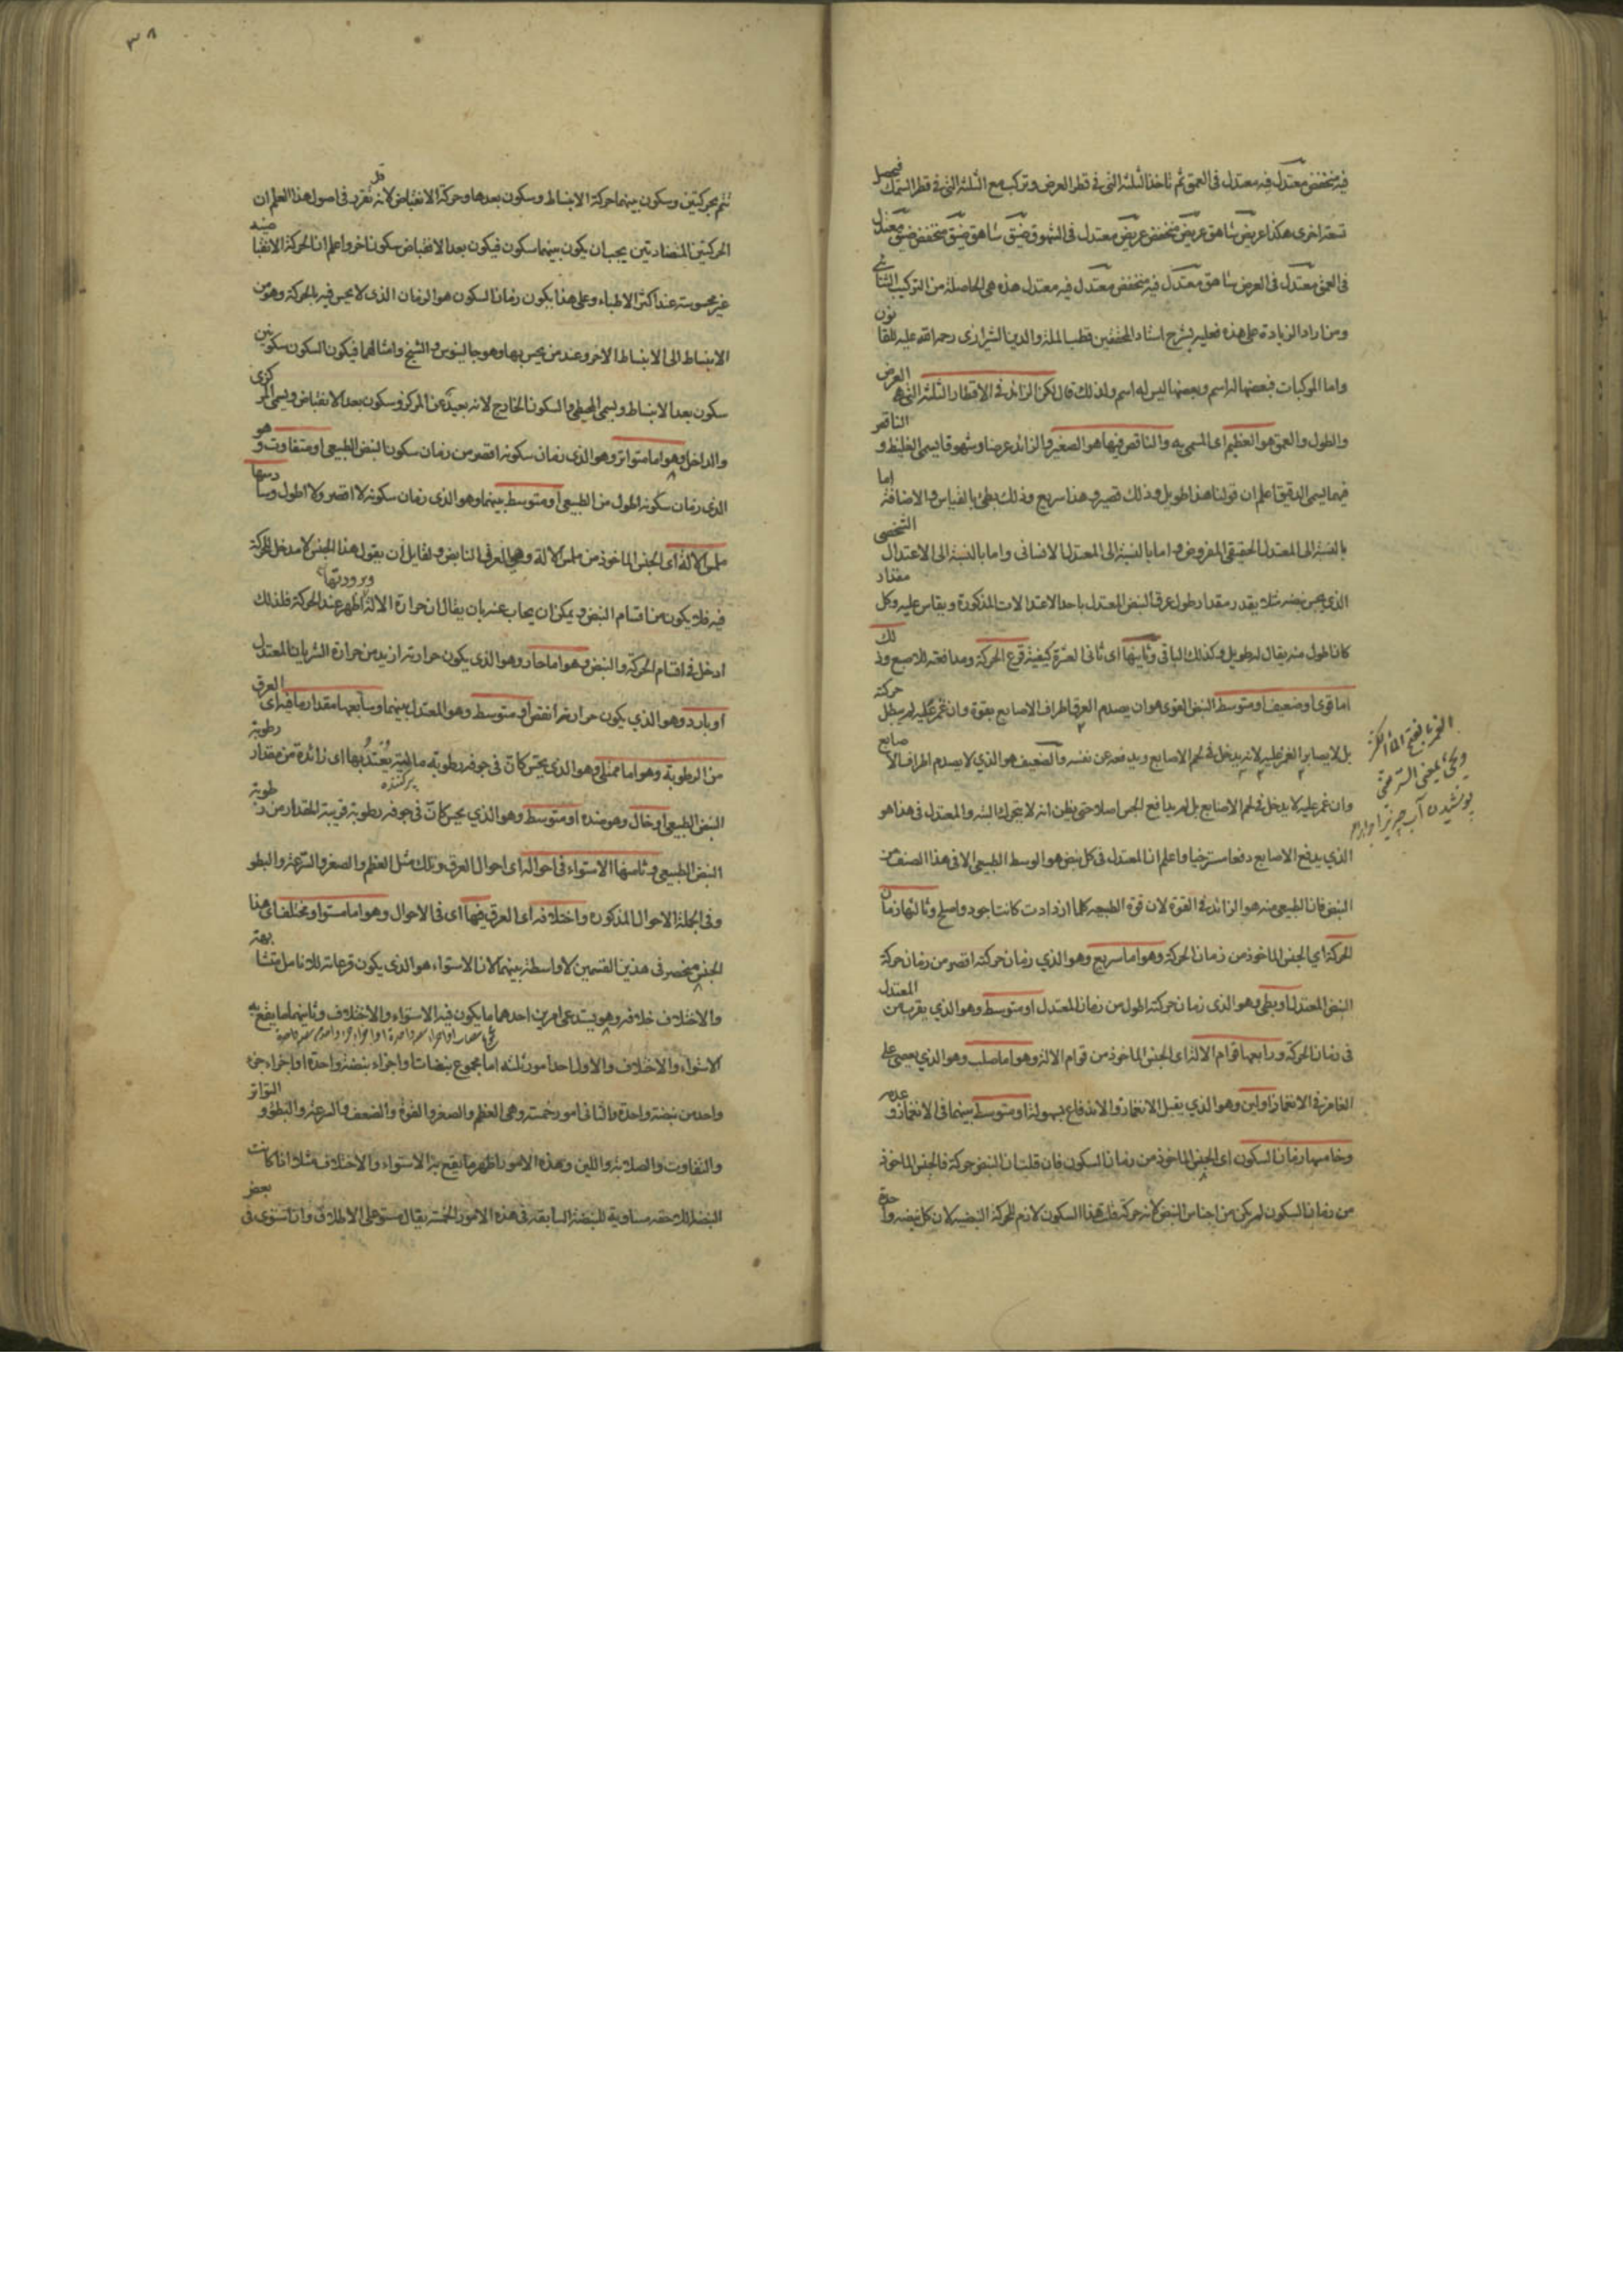 فيه منخفض معتدل فيه معتدل فى العمق ثم تاخذ الثلثة التى فى قطر العرض وتركب مع الثلثة التى فى قطر السمك فيحصل
تسعة اخرى هكذا عريض شاهق عريض منخفض عريض معتدل فى الشهوق ضيق شاهق ضيق منخفض ضيق معتدل
فى العمق معتدل فى العرض شاهق معتدل فيه منخفض معتدل فيه معتدل هذه هى الحاصلة من التركيب الثنائى
ومن اراد الزيادة على هذه فعليه بشرح استاد المحققين قطب الملة والدين الشيرازى رحمه الله عليه للقانون
واما المركبات فبعضها له اسم وبعضها ليس له اسم ولذلك قال لكن الزائد فى الاقطار الثلثة التى هى العرض
والطول والعمق هو العظيم اى المسمى به والناقص فيها هو الصغير والزائد عرضا وشهوقا يسمى الغليظ والناقص
فيهما يسمى الدقيق اعلم ان قولنا هذا طويل وذلك قصير وهذا سريع وذلك بطئ بالقياس والاضافة اما
بالنسبة الى المعتدل الحقيقى المفروض واما بالنسبة الى المعتدل الانسانى واما بالنسبة الى الاعتدال الشخصى
الذى يجس نبضه مثلا يقدر مقدار طول عرق النبض المعتدل باحد الاعتدالات المذكورة ويقاس عليه وكل مقدار
كان اطول منه يقال له طويل وكذلك الباقى وثانيها اى ثانى العشرة كيفية قرع الحركة ومدافعته للاصبع وذلك
اما قوى او ضعيف او متوسط النبض القوى هو ان يصدم العرق اطراف الاصابع بقوة وان غمز عليه لم يبطل حركته
بل لا يصابر الغمز عليه لانه يدخل فى لحم الاصابع ويدفعه عن نفسه والضعيف هو الذي لا يصدم اطراف الاصابع
وان غمز عليه لا يدخل فى لحم الاصابع بل لم يدافع الجس اصلا حتى يظن انه لا يتحرك البتة والمعتدل فى هذا هو
الذي يدفع الاصابع دفعا مسترخيا واعلم ان المعتدل فى كل نبض هو الوسط الطبيعى الا فى هذا الصنف من
النبض فان الطبيعى منه هو الزائد فى القوة لان قوة الطبيعه كلما ازدادت كانت اجود واصلح وثالثها زمان
الحركة اى الجنس الماخوذ من زمان الحركة وهو اما سريع وهو الذي زمان حركته اقصر من زمان حركة
النبض المعتدل او بطئ وهو الذى زمان حركته اطول من زمان المعتدل او متوسط وهو الذي يقرب من المعتدل
فى زمان الحركة ورابعها قوام الالة اى الجنس الماخوذ من قوام الالة وهو اما صلب وهو الذي يعصى على
الغامز فى الانغماز او لين وهو الذي يقبل الانغماز والاندفاع بسهولة او متوسط بينهما فى الانغماز وعدمه
وخامسها زمان السكون اى الجنس الماخوذ من زمان السكون فان قلت ان النبض حركة فالجنس الماخوذ
من زمان السكون لم يكن من اجناس النبض لانه حركة قلت هذا السكون لازم للحركة النبضيه لان كل نبضه واحدة
الغمز بفتح
بمعنى
تتم بحركتين وسكون بينهما حركة الانبساط وسكون بعدها وحركة الانقباض لانه قد تقرر فى اصول هذا العلم ان
الحركتين المتضادتين يجب ان يكون بينهما سكون فيكون بعد الانقباض سكون اخر واعلم ان الحركة الانقباضية
غير محسوسة عند اكثر الاطباء وعلى هذا يكون زمان السكون هو الزمان الذى لا يحس فيه بالحركة وهو من
الانبساط الى الانبساط الاخر وعند من يحس بها وهو جالينوس والشيخ وامثالهما فيكون السكون سكونين
سكون بعد الانبساط ويسمى المحيطى والسكون الخارج لانه بعيد عن المركز وسكون بعد الانقباض ويسمى المركزى
والداخل وهو اما متواتر وهو الذى زمان سكونه اقصر من زمان سكون النبض الطبيعى او متفاوت وهو
الذى زمان سكونه اطول من الطبيعى او متوسط بينهما وهو الذى زمان سكونه لا اقصر ولا اطول وسادسها
ملمس الالة اى الجنس الماخوذ من ملمس الالة وهى العرق النابض ولقايل ان يقول هذا الجنس لا مدخل للحركة
فيه فلا يكون من اقسام النبض ويمكن ان يجاب عنه بان يقال ان حرارة الالة وبرودتها اظهر عند الحركة فلذلك
ادخل فى اقسام الحركة والنبض وهو اما حار وهو الذى يكون حرارته ازيد من حرارة الشريان المعتدل
او بارد وهو الذي يكون حرارته انقص او متوسط وهو المعتدل بينهما وسابعها مقدار ما فيه اى العرق
من الرطوبة وهو اما ممتلئ وهو الذى يحس كان فى جوفه رطوبة مالئة يعتد بها اى زائدة من مقدار رطوبة
النبض الطبيعى او خال وهو ضده او متوسط وهو الذي يحس كان فى جوفه رطوبة قريبة المقدار من رطوبة
النبض الطبيعى وثامنها الاستواء فى احواله اى احوال العرق وتلك مثل العظم والصغر والسرعة والبطو
وفى الجملة الاحوال المذكورة واختلافه اى العرق فيها اى فى الاحوال وهو اما مستو او مختلف اى هذا
الجنس منحصر فى هذين القسمين لا واسطة بينهما لان الاستواء هو الذى يكون قرعاته للانامل متشابهة
والاختلاف خلافه وهو يستدعى امرين احدهما ما يكون فيه الاستواء والاختلاف وثانيهما ما يقع به
الاستواء والاختلاف والاول احد امور ثلثة اما مجموع نبضات او اجزاء نبضة واحدة او اجزاء جزء
واحد من نبضة واحدة والثانى امور خمسة وهى العظم والصغر والقوة والضعف والسرعة والبطؤ والتواتر
والتفاوت والصلابة واللين وهذه الامور اظهر ما يقع به الاستواء والاختلاف مثلا اذا كانت
النبضة اللاحقه مساوية للنبضة السابقة فى هذه الامور الخمسة يقال مستو على الاطلاق وان استوى فى بعض
٣٨